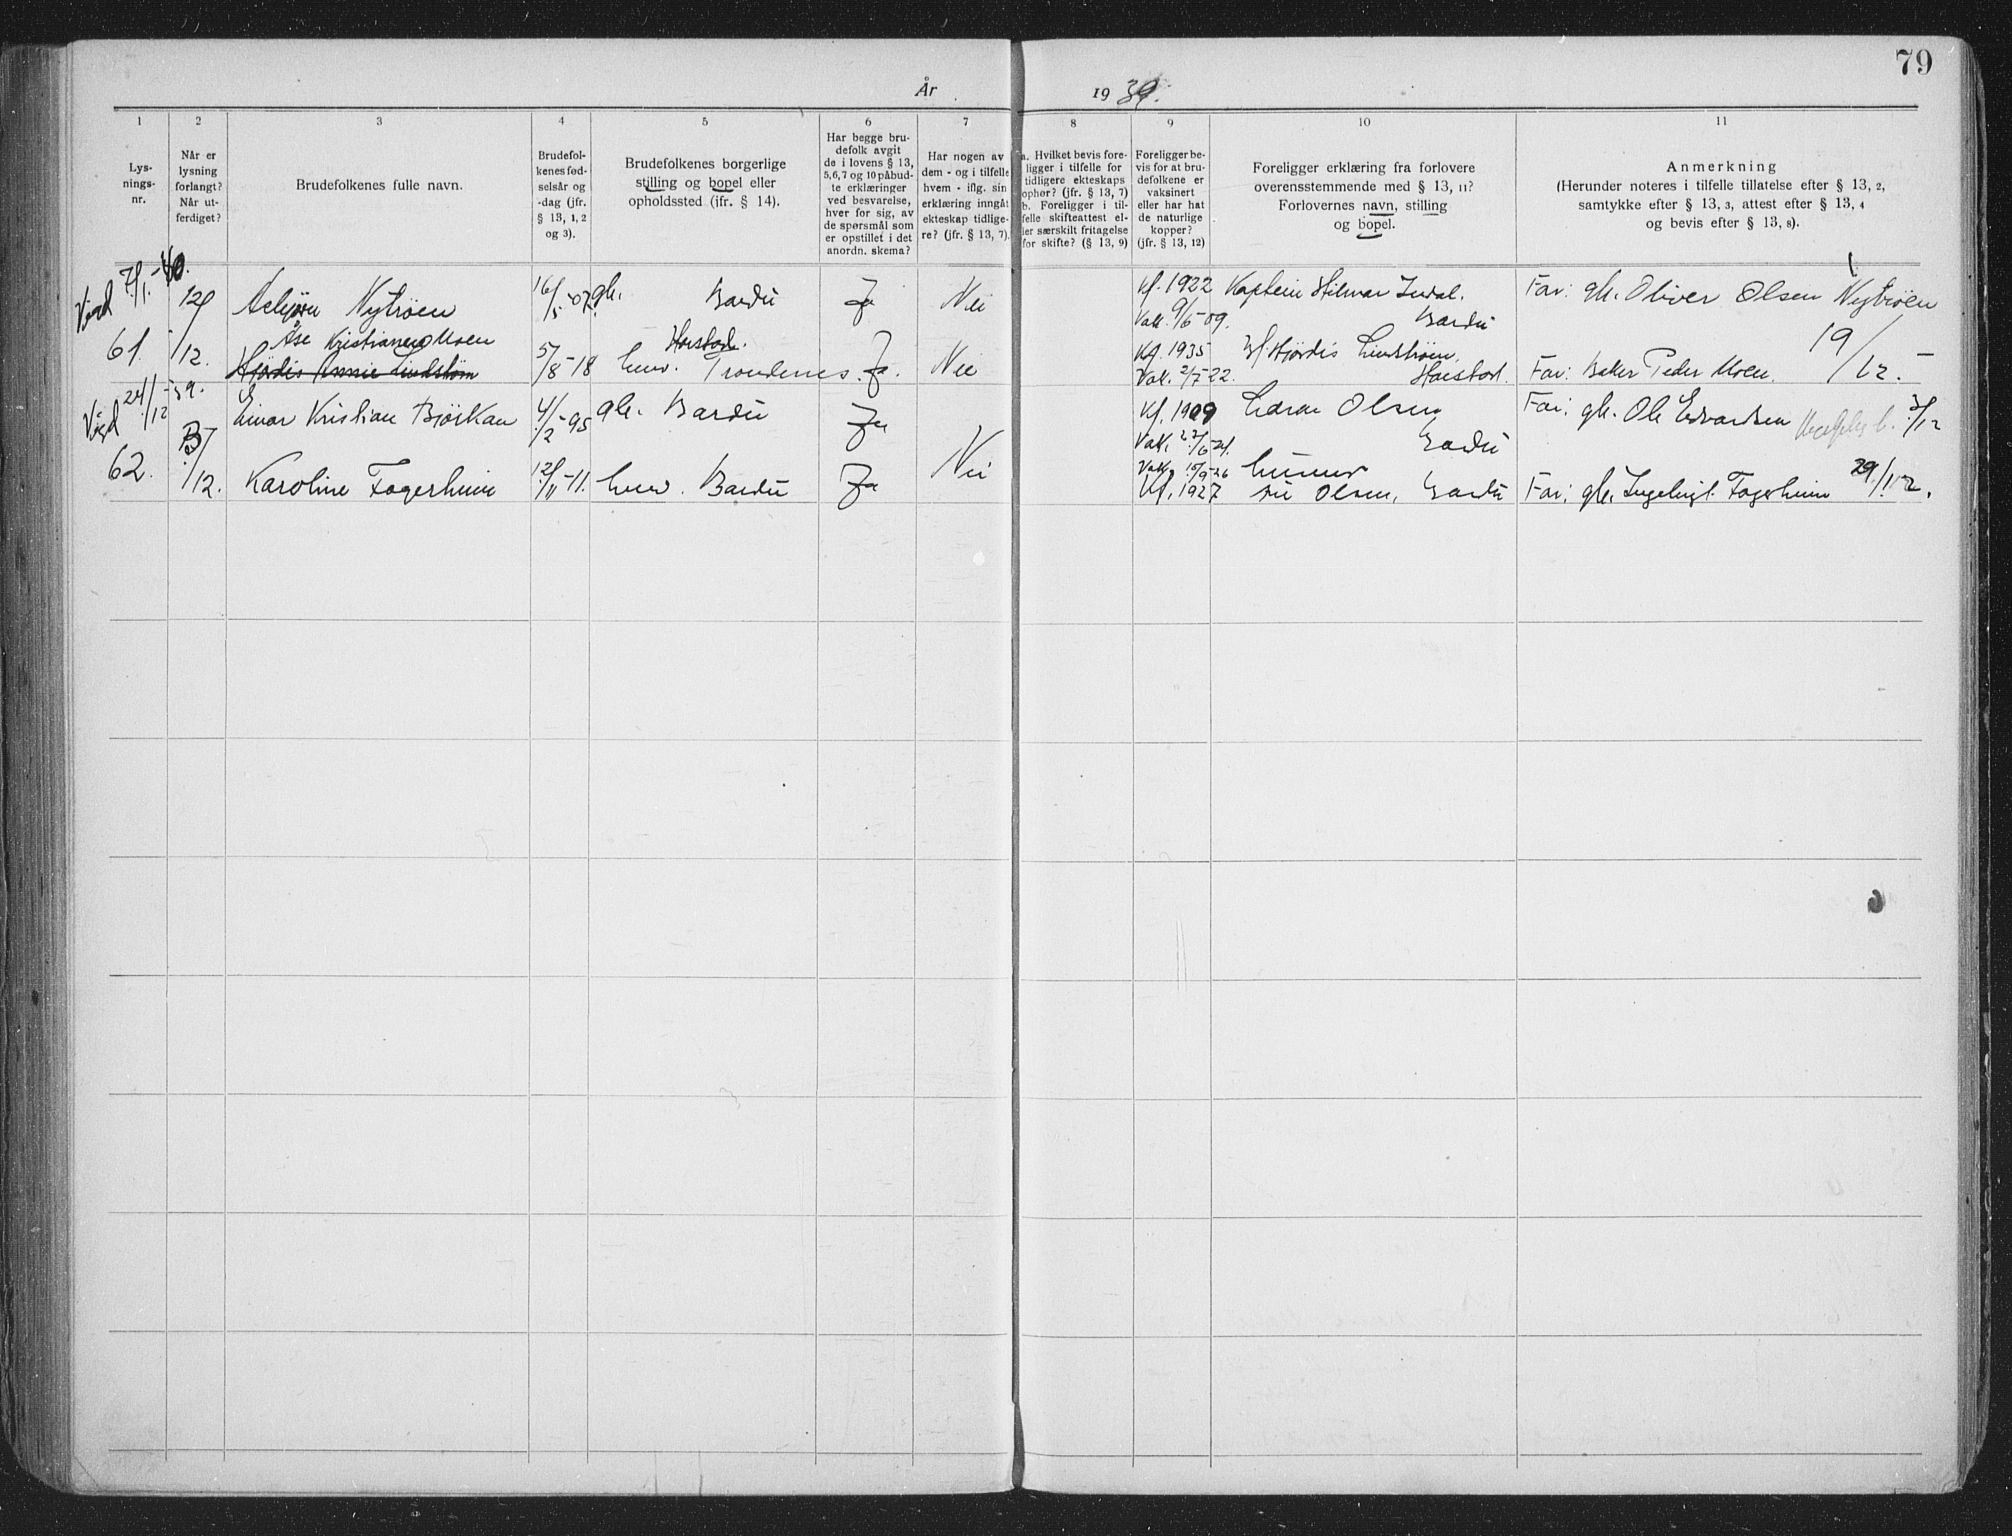 79
År 1939.
1 2 3 4 5 6 7 8 9 10 11
Lys-
nings-
nr.
Når er
lysning
forlangt?
Når ut-
ferdiget?
Brudefolkenes fulle navn.
Brudefol-
kenes fød-
selsår og
-dag (jfr.
§ 13, 1, 2
og 3).
Brudefolkenes borgerlige
stilling og bopel eller
opholdssted (jfr. § 14).
Har begge bru-
defolk avgit
de i lovens § 13,
5,6,7 og 10 påbud-
te erklæringer
ved besvarelse,
hver for sig, av
de spørsmål som
er opstillet i det
anordn. skema?
Har nogen av
dem - og i tilfelle
hvem - iflg. sin
erklæring inngåt
ekteskap tidlige-
re? (jfr. § 13, 7).
a. Hvilket bevis fore-
ligger i tilfelle for
tidligere ekteskaps
ophør? (jfr. § 13, 7)
b. Foreligger i til-
felle skifteattest el-
ler særskilt fritagelse
for skifte? (§ 13, 9)
Foreligger be-
vis for at bru-
defolkene er
vaksinert
eller har hat
de naturlige
kopper?
(jfr. § 13, 12)
Foreligger erklæring fra forlovere
overensstemmende med § 13, 11?
Forlovernes navn, stilling
og bopel.
Anmerkning
(Herunder noteres i tilfelle tillatelse efter § 13, 2,
samtykke efter § 13, 3, attest efter § 13, 4
og bevis efter § 13, 8).
Vigd 7/1.-40.
12/ Asbjørn Nytrøen 16/5-07. gb. Bardu Ja Nei Kf. 1922 Kaptein Hilmar Indal. Far: gb. Oliver Olsen Nytrøen
Vak. 9/6-09. Bardu
61. /12. Åse Kristiane Moen 5/8-18 Harstad. Kf. 1935 Hjørdis Lindstrøm. 19/12.-
Hjørdis Annie Lindstøm huv. Trondenes. Ja. Nei Vak. 2/7-22. Harstad. Far: Baker Peder Moen.
Vigd 24/12-39.
Einar Kristian Bjørkan 4/2-95 gb. Bardu Ja Kf. 1909 Olsen Far: gb. Ole Edvardsen
Vak. 27/6-24. Bardu
62. /12. Karoline Fagerheim 12/11-11. huv. Bardu Ja Nei Vak. 15/9-26
Kf. 1927 Olsen, Bardu Far: gb. Ingebrigt Fagerheim 29/12.